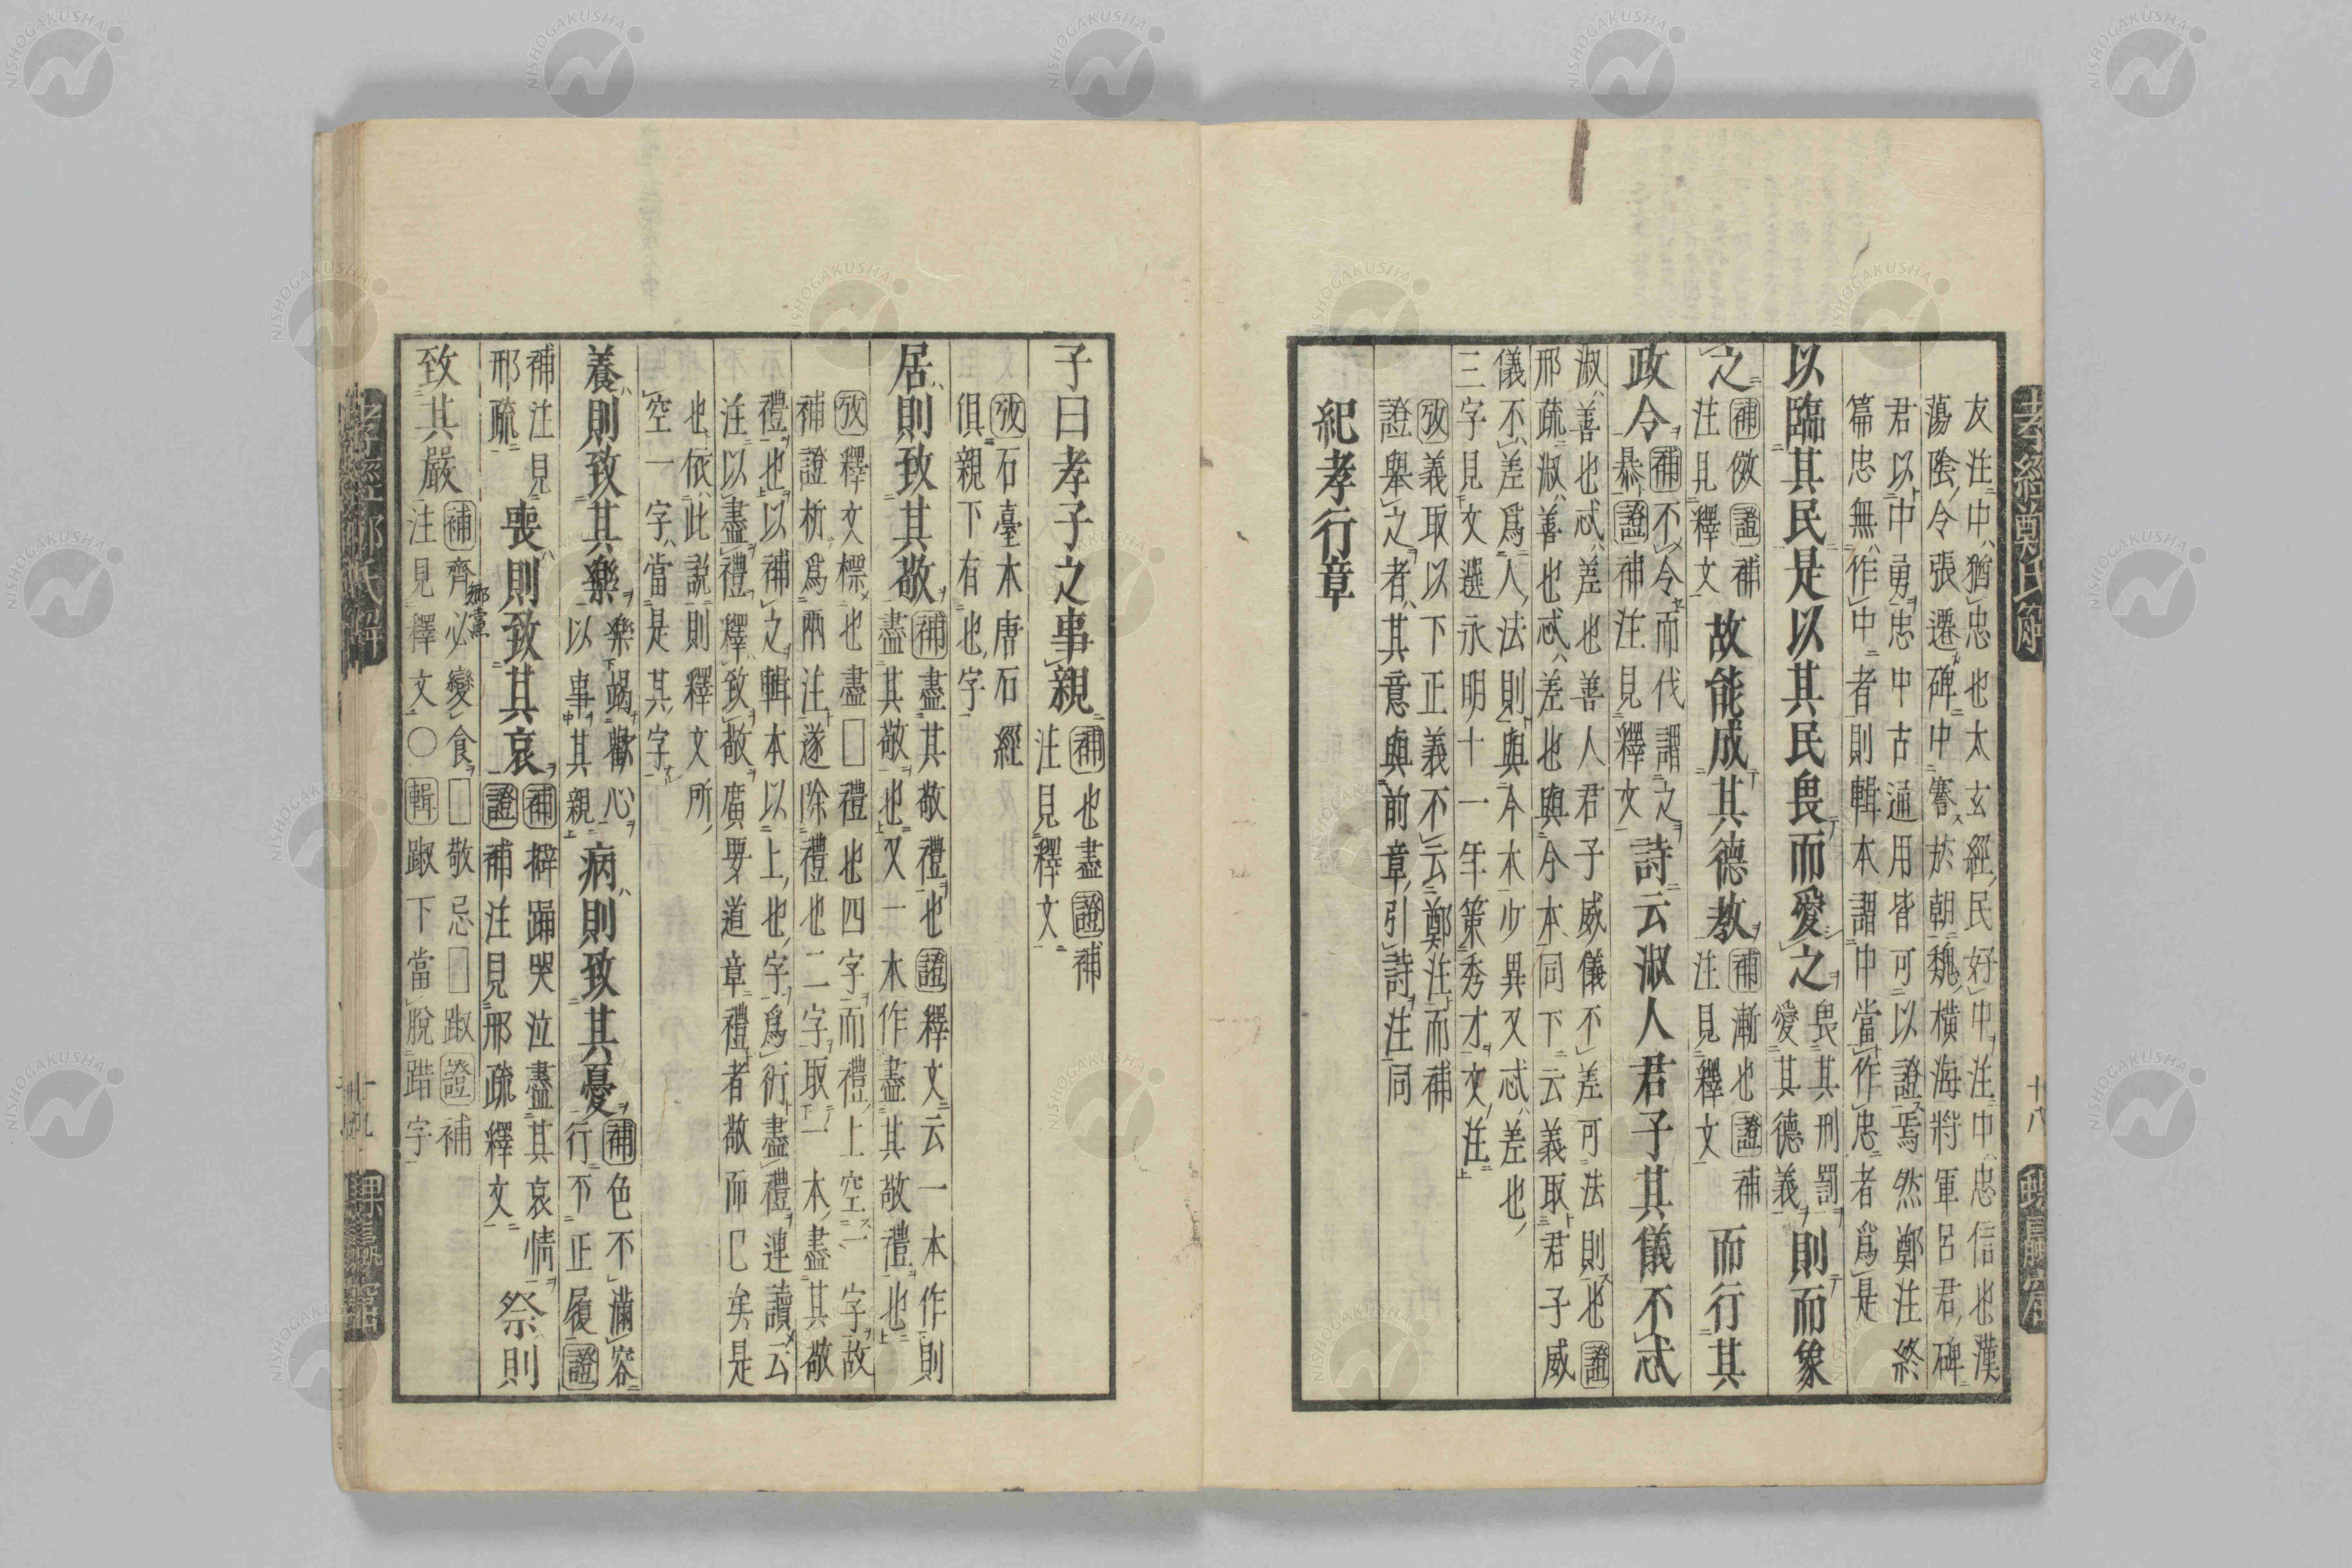 友注中猶忠也太玄經民好中注中忠信也漢
蕩陰令張遷碑中謇於朝魏橫海將軍呂君碑
君以中勇忠中古通用皆可以證焉然鄭注終
篇忠無作中者則輯本謂中當作忠者爲是
以臨其民是以其民畏而愛之
畏其刑罰
愛其德義
則而象
之
補傚證補
注見釋文
故能成其德教
補漸也證補
注見釋文
而行其
政令
補不令而伐謂之
暴證補注見釋文
詩云淑人君子其儀不忒
淑善也忒差也善人君子威儀不差可法則也證
邢疏淑善也忒差也與今本同下云義取君子威
儀不差爲人法則與今本少異又忒差也
三字見文選永明十一年策秀才文注
攷義取以下正義不云鄭注而補
證舉之者其意與前章引詩注同
紀孝行章
子曰孝子之事親
補也盡證補
注見釋文
攷石臺本唐石經
俱親下有也字
居則致其敬
補盡其敬禮也證釋文云一本作則
盡其敬也又一本作盡其敬禮也
攷釋文標也盡□禮也四字而禮上空一字故
補證析爲兩注遂除禮也二字取一本盡其敬
禮也以補之輯本以上也字爲衍盡禮連讀云
注以盡禮釋致敬廣要道章禮者敬而已矣是
也依此說則釋文所
空一字當是其字
養則致其樂
樂竭歡心
以事其親
病則致其憂
補色不滿容
行不正履證
補注見
邢疏
喪則致其哀
補擗踊哭泣盡其哀情
證補注見邢疏釋文
祭則
致其嚴
補齊必變食□敬忌□踧證補
注見釋文○輯踧下當脫踖字
鄉黨
孝經鄭氏解
十八
孝經鄭氏解
十九